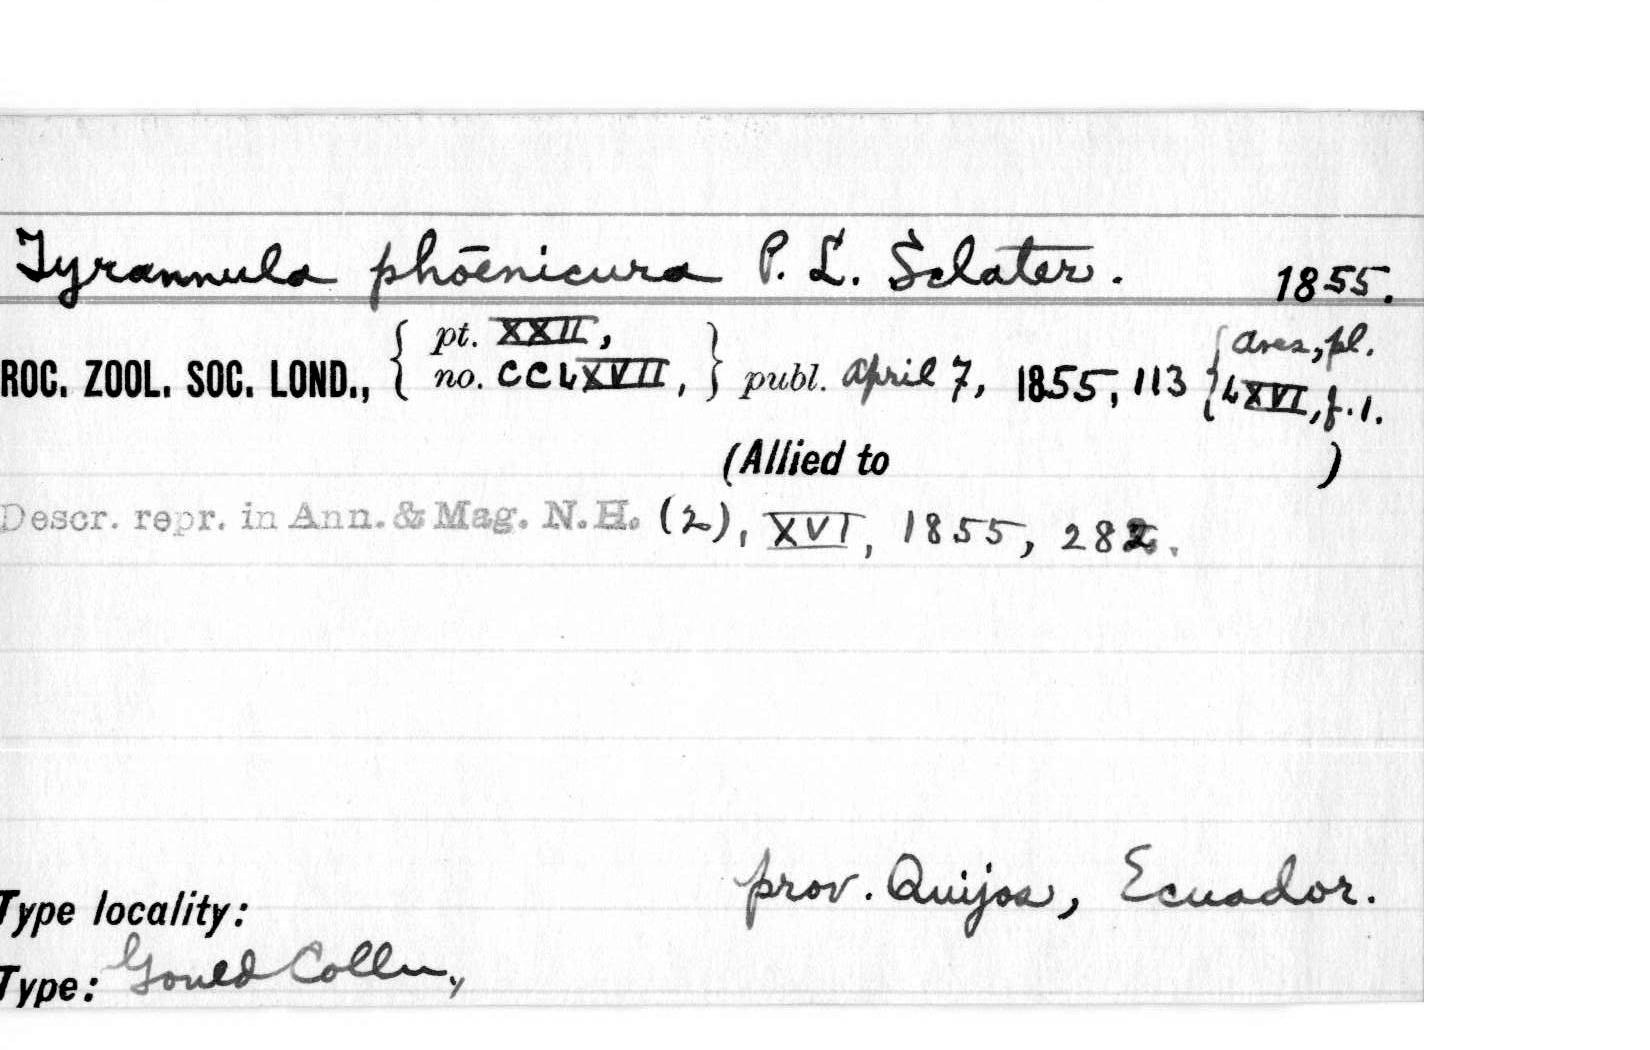 Tyrannula phoenicura P. L. Sclater. 1855.
pt. XXII, Aves, pl.
ROC. ZOOL. SOC. LOND., no. CCLXVII, publ. April 7, 1855, 113 LXVI, f. 1.
(Allied to )
Descr. repr. in Ann. & Mag. N.H. (2), XVI, 1855, 282.
Type locality: prov. Quijos, Ecuador.
Type: Gould Colln,